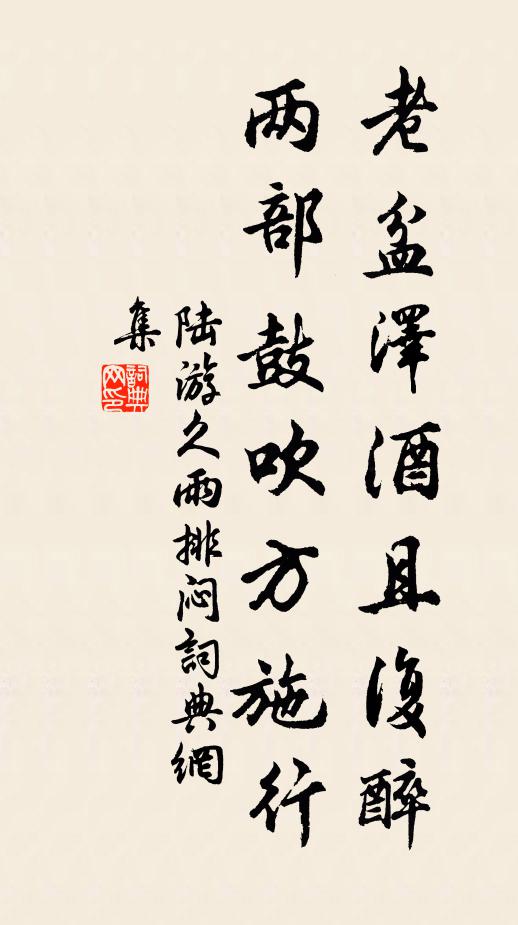 老盆澤酒且復醉
两部鼓吹方施行
陆游久雨排闷詞典網
集
詞典
网印